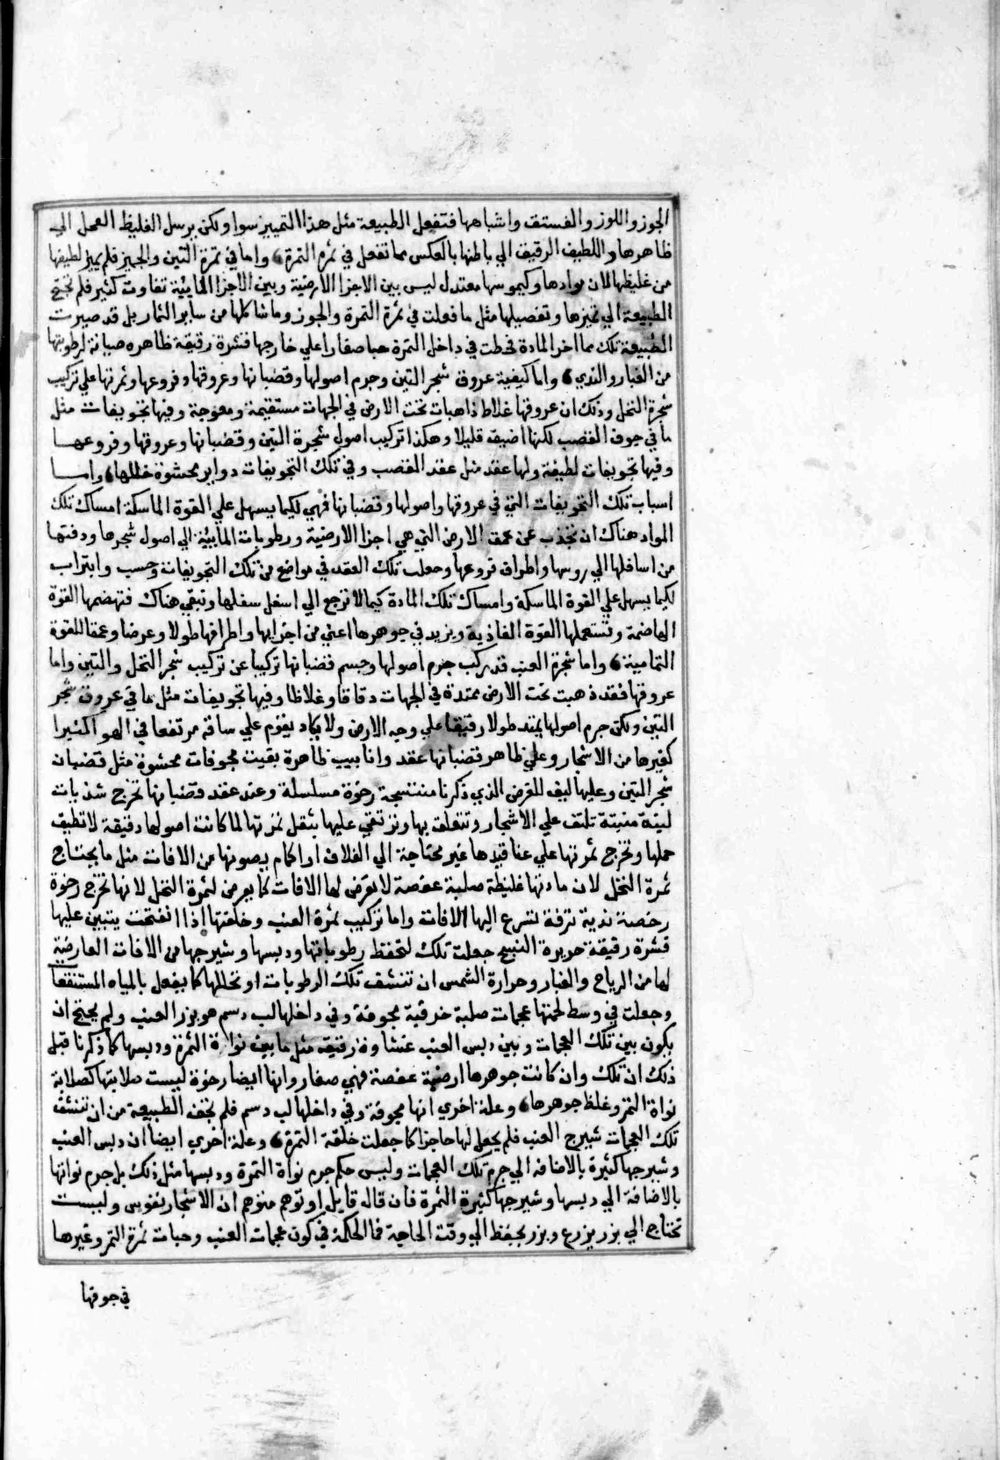 الجوز واللوز والفستق واشباهها فتفعل الطبيعة مثل هذا التمييز سوا ولكن يرسل الغليظ العمل الي
ظاهرها واللطيف الرقيق الي باطنها بالعكس مما تفعل في ثمرة التمرة واما في ثمرة التين والجميز فلم يميز لطيفها
من غليظها لان موادها وكيموسها معتدل ليس بين الاجزا الارضية وبين الاجزا المايية تفاوت كثير فلم تحتج
الطبيعة الي تميزها وتفصيلها مثل ما فعلت في ثمرة التمرة والجوز وما شاكلها من ساير الثمار بل قد صيرت
الطبيعة تلك مما اخر المادة فخطت في داخل التمرة حبا صغارا علي خارجها قشرة رقيقة ظاهره صيانة لرطوبتها
من الغبار والندي واما كيفية عروق شجر التين وجرم اصولها وقضبانها وعروقها وفروعها وثمرتها علي تركيب
شجرة النخل وذلك ان عروقها غلاظ ذاهبات تحت الارض في الجهات مستقيمة ومعوجة وفيها تجويفات مثل
ما في جوف القصب لكنها اضيق قليلا وهكذا تركيب اصول شجرة التين وقضبانها وعروقها وفروعها
وفيها تجويفات لطيفة ولها عقد مثل عقد القصب وفي تلك التجويفات دواير محشوة خللها واما
اسباب تلك التجويفات التي في عروقها واصولها وقضبانها فهي لكيما يسهل علي القوة الماسكة امساك تلك
المواد هناك ان تجذب عن عمق الارض التي هي اجزا الارضية ورطوبات المايية الي اصول شجرها ودفتها
من اسافلها الي روسها واطراف فروعها وجعلت تلك العقد في مواضع من تلك التجويفات
لكيما يسهل علي القوة الماسكة وامساك تلك المادة كيما لا ترجع الي اسفل سفلها وتبقي هناك فتهضمها القوة
الهاضمة وتستعملها القوة الغاذية ويزيد في جوهرها اعني من اجزايها واطرافها طولا وعرضا وعمقا للقوة
النامية واما شجرة العنب قد ركب جرم اصولها وجسم قضبانها تركيبا عن تركيب شجر النخل والتين واما
عروقها فقد ذهبت تحت الارض ممتدة في الجهات دقاقا وغلاظا وفيها تجويفات مثل ما في عروق شجر
التين ولكن جرم اصولها يمتد طولا رقيقا علي وجه الارض ولا يكاد يقوم علي ساقه مرتفعا في الهوا كثيرا
كغيرها من الاشجار وعلي ظاهر قضبانها عقد وانابيب ظاهرة بقيت مجوفات محشوة مثل قضبان
شجر التين وعليها ليف للغرض الذي ذكرنا منتسجة رخوة مسلسلة وعند عقد قضبانها تخرج شذبات
لينة منبتة تلتف علي الاشجار وتتعلق بها وترتقي عليها بثقل ثمرتها لما كانت اصولها دقيقة لا تطيق
حملها وتخرج ثمرتها علي عناقيدها غير محتاجة الي الغلاف او اكمام يصونها من الافات مثل ما يحتاج
ثمرة النخل لان مادتها غليظة صلبة عفصة لا يعرض لها الافات كما يعرض لثمرة النخل لانها تخرج رخوة
رخصة ندية ترفة تسرع اليها الافات واما تركيب ثمرة العنب وخلقتها اذا انفتحت يتبين عليها
قشرة رقيقة حريرة النسج جعلت تلك لتحفظ رطوباتها ودبسها وشيرجها من الافات العارضة
لها من الرياح والغبار وحرارة الشمس ان تنشف تلك الرطوبات او تحللها كما يفعل بالمياه المستنقعا
وجعلت في وسط لحمتها عجمات صلبة خزفية مجوفة وفي داخلها لب دسم هو بزر العنب ولم يحتج ان
يكون بين تلك العجمات وبين دبس العنب غشاوة رقيقة مثل ما بين نواة الثمرة ودبسها كما ذكرنا قبل
ذلك ان تلك وان كانت جوهرها ارضية عفصة فهي صغار وانها ايضا رخوة ليست صلابتها كصلابة
نواة التمر وغلظ جوهرها وعلة اخري انها مجوفة وفي داخلها لب دسم فلم تخف الطبيعة من ان تنشف
تلك العجمات شيرج العنب فلم يجعل لها حاجزا كما جعلت خلقة التمرة وعلة اخري ايضا ان دبس العنب
وشيرجها كثيرة بالاضافه الي جرم تلك العجمات وليس حكم جرم نواة التمرة ودبسها مثل ذلك بل جرم نواتها
بالاضافة الي دبسها وشيرجها كثيرة الثمرة فان قال قايل او توهم متوهم ان الاشجار نفوس وليست
تحتاج الي بزر يزرع وبزر يحفظ الي وقت الحاجة فما الحكمة في كون عجمات العنب وحبات ثمرة التمر وغيرها
في جوفها